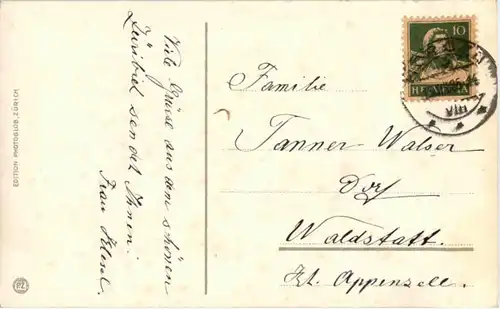 EDITION PHOTOGLOB, ZÜRICH
PZ
Viele Grüsse aus dem schönen
Züribiet sendet Ihnen
Frau
10
HELVETIA
VIII
Familie
Tanner-Walser
Dorf
Waldstatt.
Kt. Appenzell.